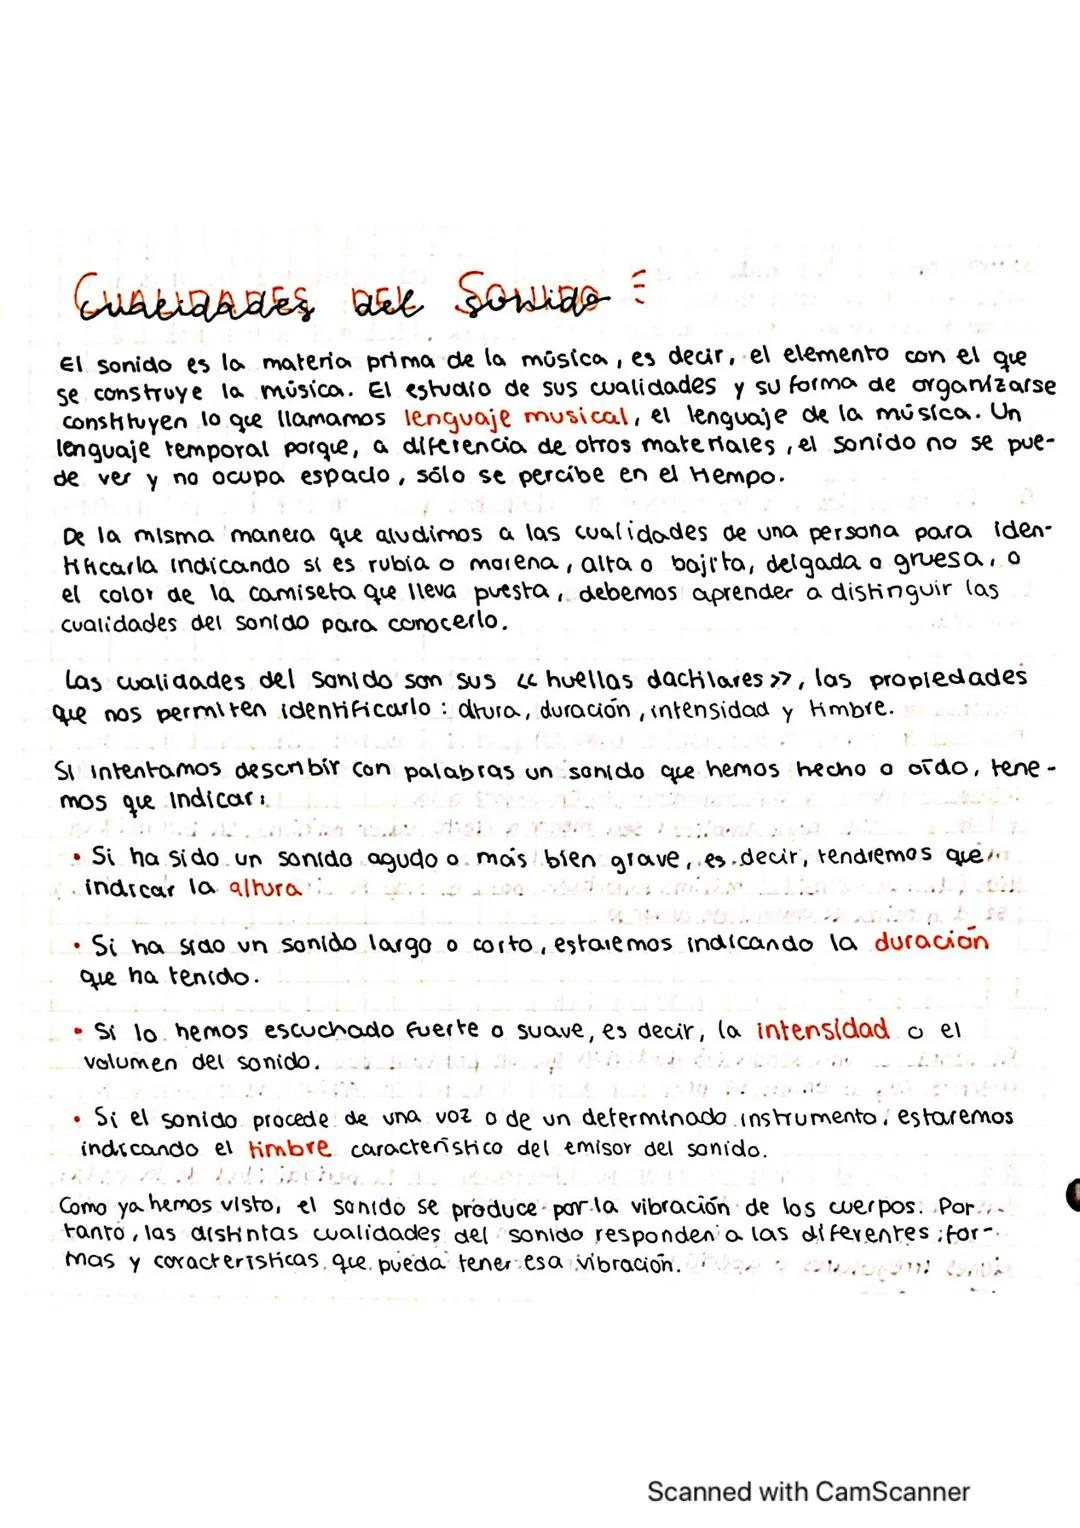 Cualidades del Sonido
El sonido es la materia prima de la música, es decir, el elemento con el que
se construye la música. El estudio de sus cualidades y su forma de organizarse
constituyen lo que llamamos lenguaje musical, el lenguaje de la música. Un
lenguaje temporal porque, a diferencia de otros materiales, el sonido no se pue-
de ver y no ocupa espacio, sólo se percibe en el tiempo.
De la misma manera que aludimos a las cualidades de una persona para iden-
tificarla indicando si es rubia o morena, alta o bajita, delgada o gruesa, o
el color de la camiseta que lleva puesta, debemos aprender a distinguir las
cualidades del sonido para conocerlo.
Las cualidades del sonido son sus << huellas dactilares >>, las propiedades
que nos permiten identificarlo: altura, duración, intensidad y timbre.
Si intentamos describir con palabras un sonido que hemos hecho o oído, tene-
mos que indicar:
• Si ha sido un sonido agudo o más bien grave, es decir, tendremos que
indicar la altura
• Si ha sido un sonido largo o corto, estaremos indicando la duración
que ha tenido.
• Si lo hemos escuchado fuerte o suave, es decir, la intensidad o el
volumen del sonido.
• Si el sonido procede de una voz o de un determinado instrumento, estaremos
indicando el timbre característico del emisor del sonido.
Como ya hemos visto, el sonido se produce por la vibración de los cuerpos. Por
tanto, las distintas cualidades del sonido responden a las diferentes for-
mas y características que pueda tener esa vibración.
Scanned with CamScanner